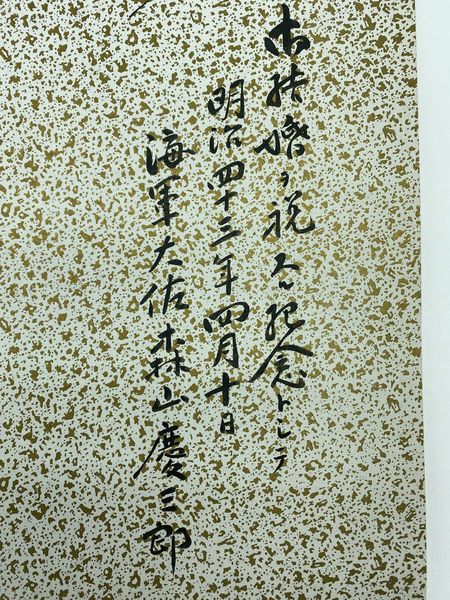 御結婚ヲ祝スル記念トシテ
明治四十三年四月十日
海軍大佐森山慶三郎